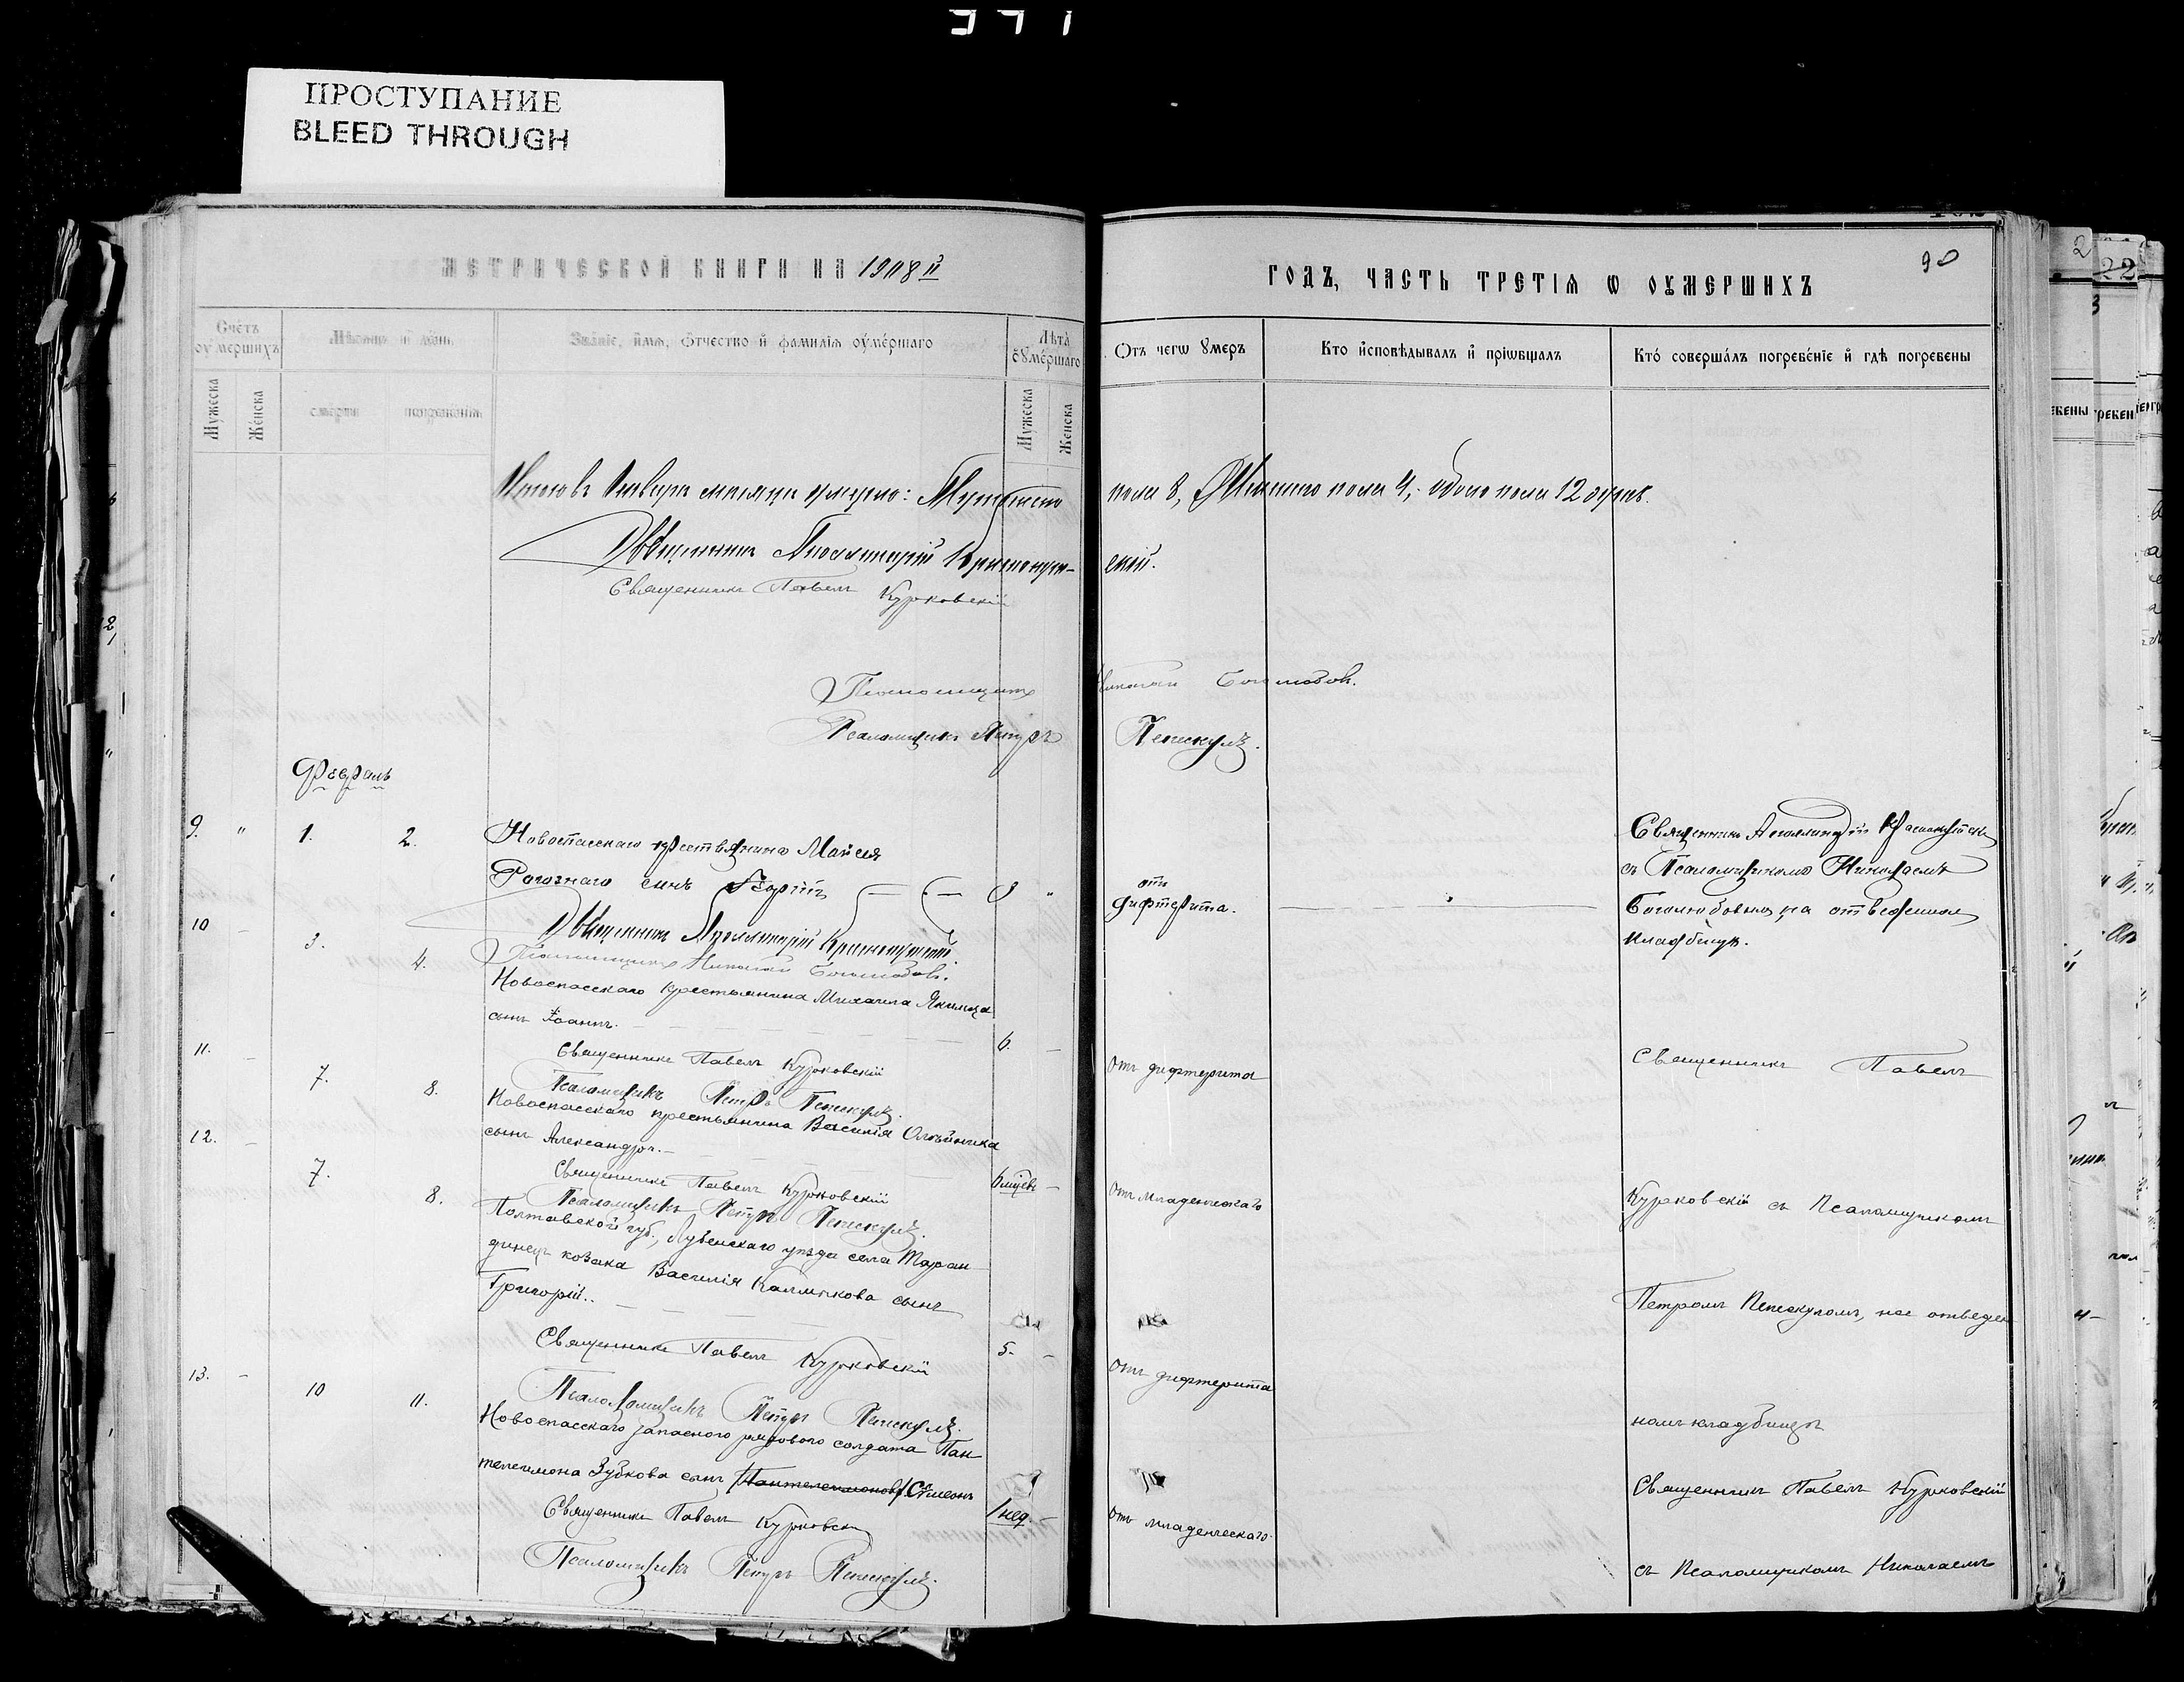 371
ПРОСТУПАНИЕ
BLEED THROUGH
МЕТРИЧЕСКОЙ КНИГИ НА 1908 й
ГОДЪ, ЧАСТЬ ТРЕТІѦ Ѡ ОУМЕРШИХЪ
90
Счетъ оумершихъ
Мужеска
Женска
Мѣсѧцъ и день
смерти
погребенія
Званіе, имѧ, отчество и фамиліѧ оумершаго
Лѣта оумершаго
Мужеска
Женска
Отъ чегѡ умеръ
Кто исповѣдывалъ и пріѡбщалъ
Кто совершалъ погребеніе и гдѣ погребены
Итого въ Январѣ мѣсяцѣ умерло: Мужескаго пола 8, Женскаго пола 4, обоего пола 12 душъ.
Священникъ Аполлинарій Краснокутскій.
Священникъ Павелъ Курковскій
Псаломщикъ Николай Боголюбовъ.
Псаломщикъ Петръ Пепескулъ.
Февраль
9. " 1. 2.
Новоспасскаго крестьянина Моисея
Рогознаго сынъ
отъ дифтерита.
Священникъ Аполлинарій Краснокутскій
съ Псаломщикомъ Николаемъ
Боголюбовымъ, на отведенномъ
кладбищѣ.
Священникъ Аполлинарій Краснокутскій.
Псаломщикъ Николай Боголюбовъ.
10 - 3. 4.
Новоспасскаго крестьянина Михаила Якимца
сынъ Іоаннъ.
6. -
отъ дифтерита
Священникъ Павелъ
Священникъ Павелъ Курковскій
Псаломщикъ Петръ Пепескулъ.
11. - 7. 8.
Новоспасскаго крестьянина Василія Олѣйника
сынъ Александръ.
6 мѣсяц -
отъ младенческаго
Курковскій съ Псаломщикомъ
Священникъ Павелъ Курковскій
Псаломщикъ Петръ Пепескулъ.
12. - 7. 8.
Полтавской губ., Лубенскаго уѣзда села Таран
динец козака Василія Калмикова сынъ
Григорій..
5. -
отъ дифтерита
Петромъ Пепескуломъ, на отведен
Священникъ Павелъ Курковскій
Псаломщикъ Петръ Пепескулъ.
номъ кладбищѣ
13. - 10 11.
Новоспасскаго запасного рядового солдата Пан
телеимона Зубкова сынъ /Пантелеимоновъ/ Симеонъ
1 нед. -
отъ младенческаго
Священникъ Павелъ Курковскій
съ Псаломщикомъ Николаемъ
Священникъ Павелъ Курковскій
Псаломщикъ Петръ Пепескулъ.